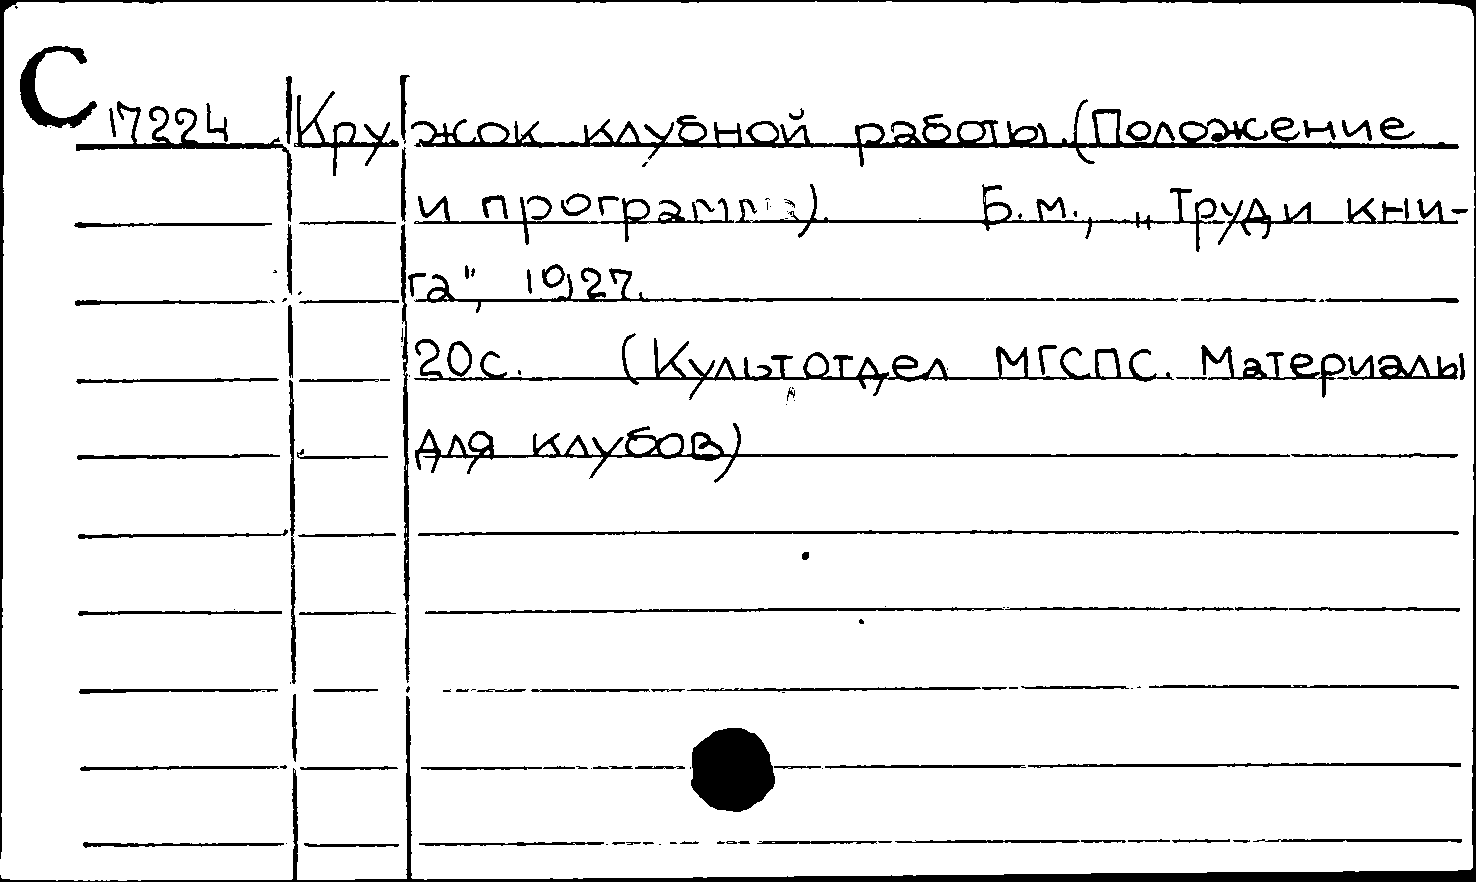 С 17224 Кружок клубной работы. (Положение
и программа). Б.м., „Труд и кни-
га", 1927.
20с. (Культотдел МГСПС. Материалы
для клубов)